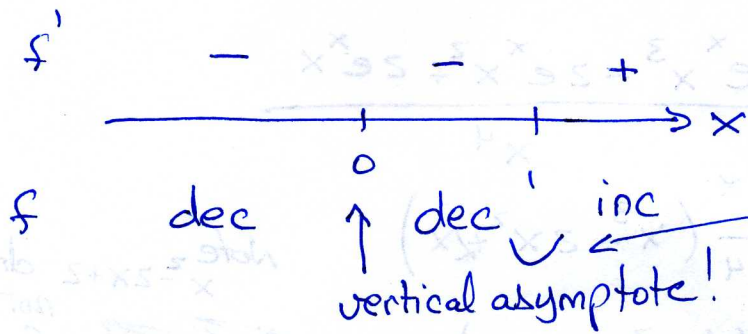 f'
− − +
x
0 1
f dec dec inc
vertical asymptote!